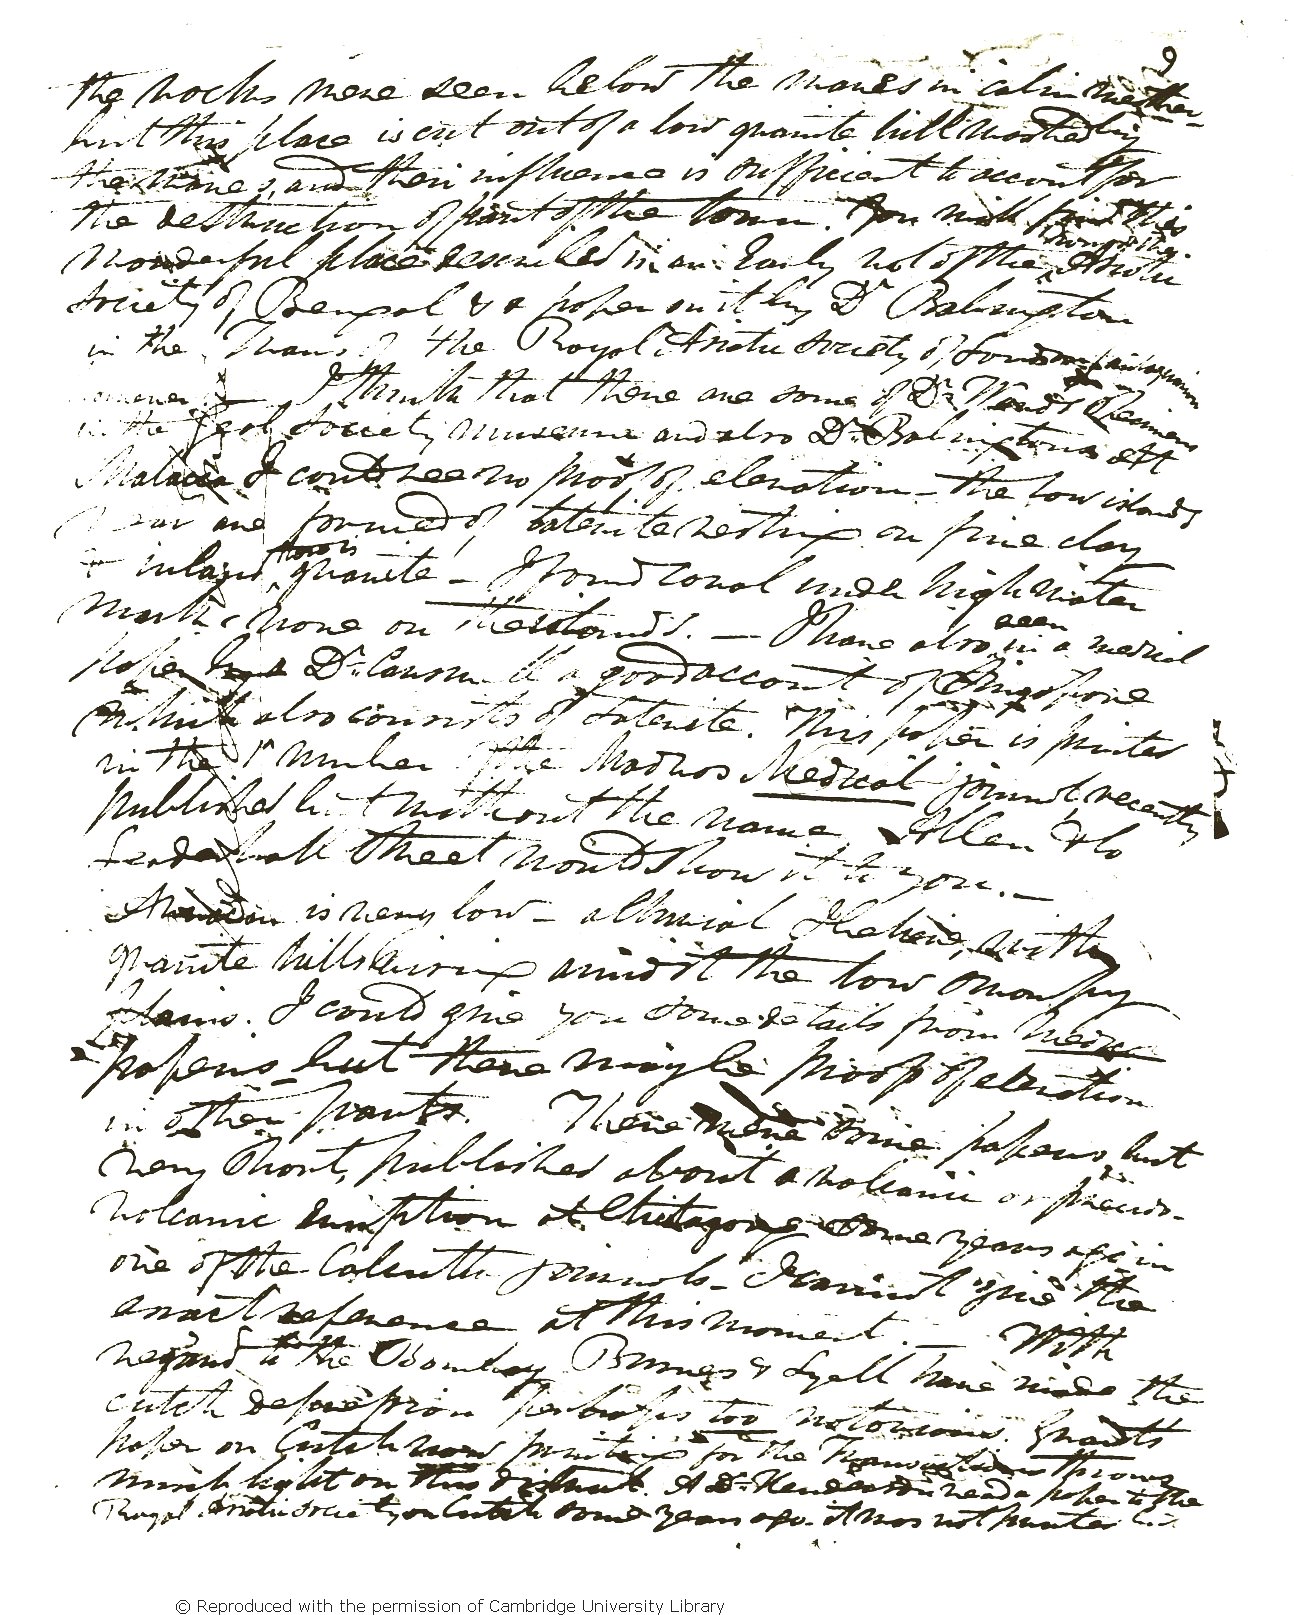 9
the rocks were seen below the waves in calm weather –
but this place is cut out of a low granite hill washed by
the waves, and their influence is sufficient to account for
the destruction of part of the town. You will find this
wonderful place described in an Early vol of the Asiatic
Society of Bengal & a paper on it by Dr Babington
in the Trans of the Royal Asiatic Society of London
I think that there are some of Dr Specimens
in the Geol Society museum and also Dr Babingtons. At
Malacca I could see no proof of elevation – the low islands
near are formed of laterite resting on fine clay
inland granite – I found coral under high water
mark & none on the islands. — I have also seen in a medical
paper Dr a good account of Singapore
which also consists of Laterite. This paper is printed
in the 1st Number of the Madras Medical journal, recently
published but without the name, Allen & Co
Leadenhall Street would show it to you. —
is very low – alluvial I believe, with
granite hills rising amidst the low swampy
plains. I could give you some details from
papers – but there may be proof of elevation
in other parts. There were some papers, but
very short, published about a volcanic or pseudo-
volcanic eruption at Chittagong some years ago in
one of the Calcutta journals – I cannot give the
exact reference at this moment. — With
regard to the Bombay Burnes & Lyell have made the
Cutch depression perhaps too notorious. Grants
paper on Cutch now printing for the Transactions throws
much light on this district. A Dr Henderson read a paper to the
Royal Asiatic Society on Cutch some years ago. it was not printed
© Reproduced with the permission of Cambridge University Library